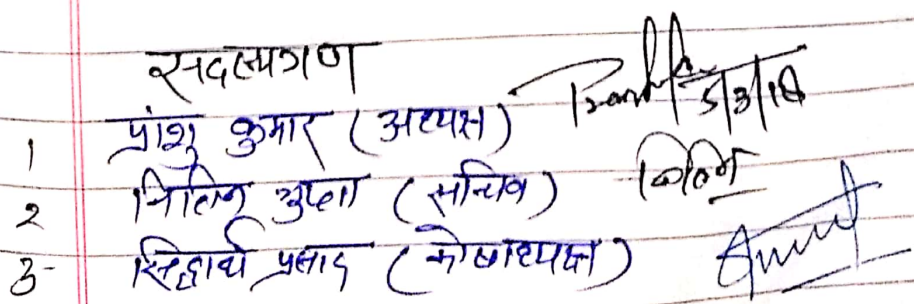 सदस्यगण
1 प्रांशु कुमार (अध्यक्ष) 5/3/18
2 नितिन गुप्ता (सचिव) नितिन
3- सिद्धार्थ प्रसाद (कोषाध्यक्ष)